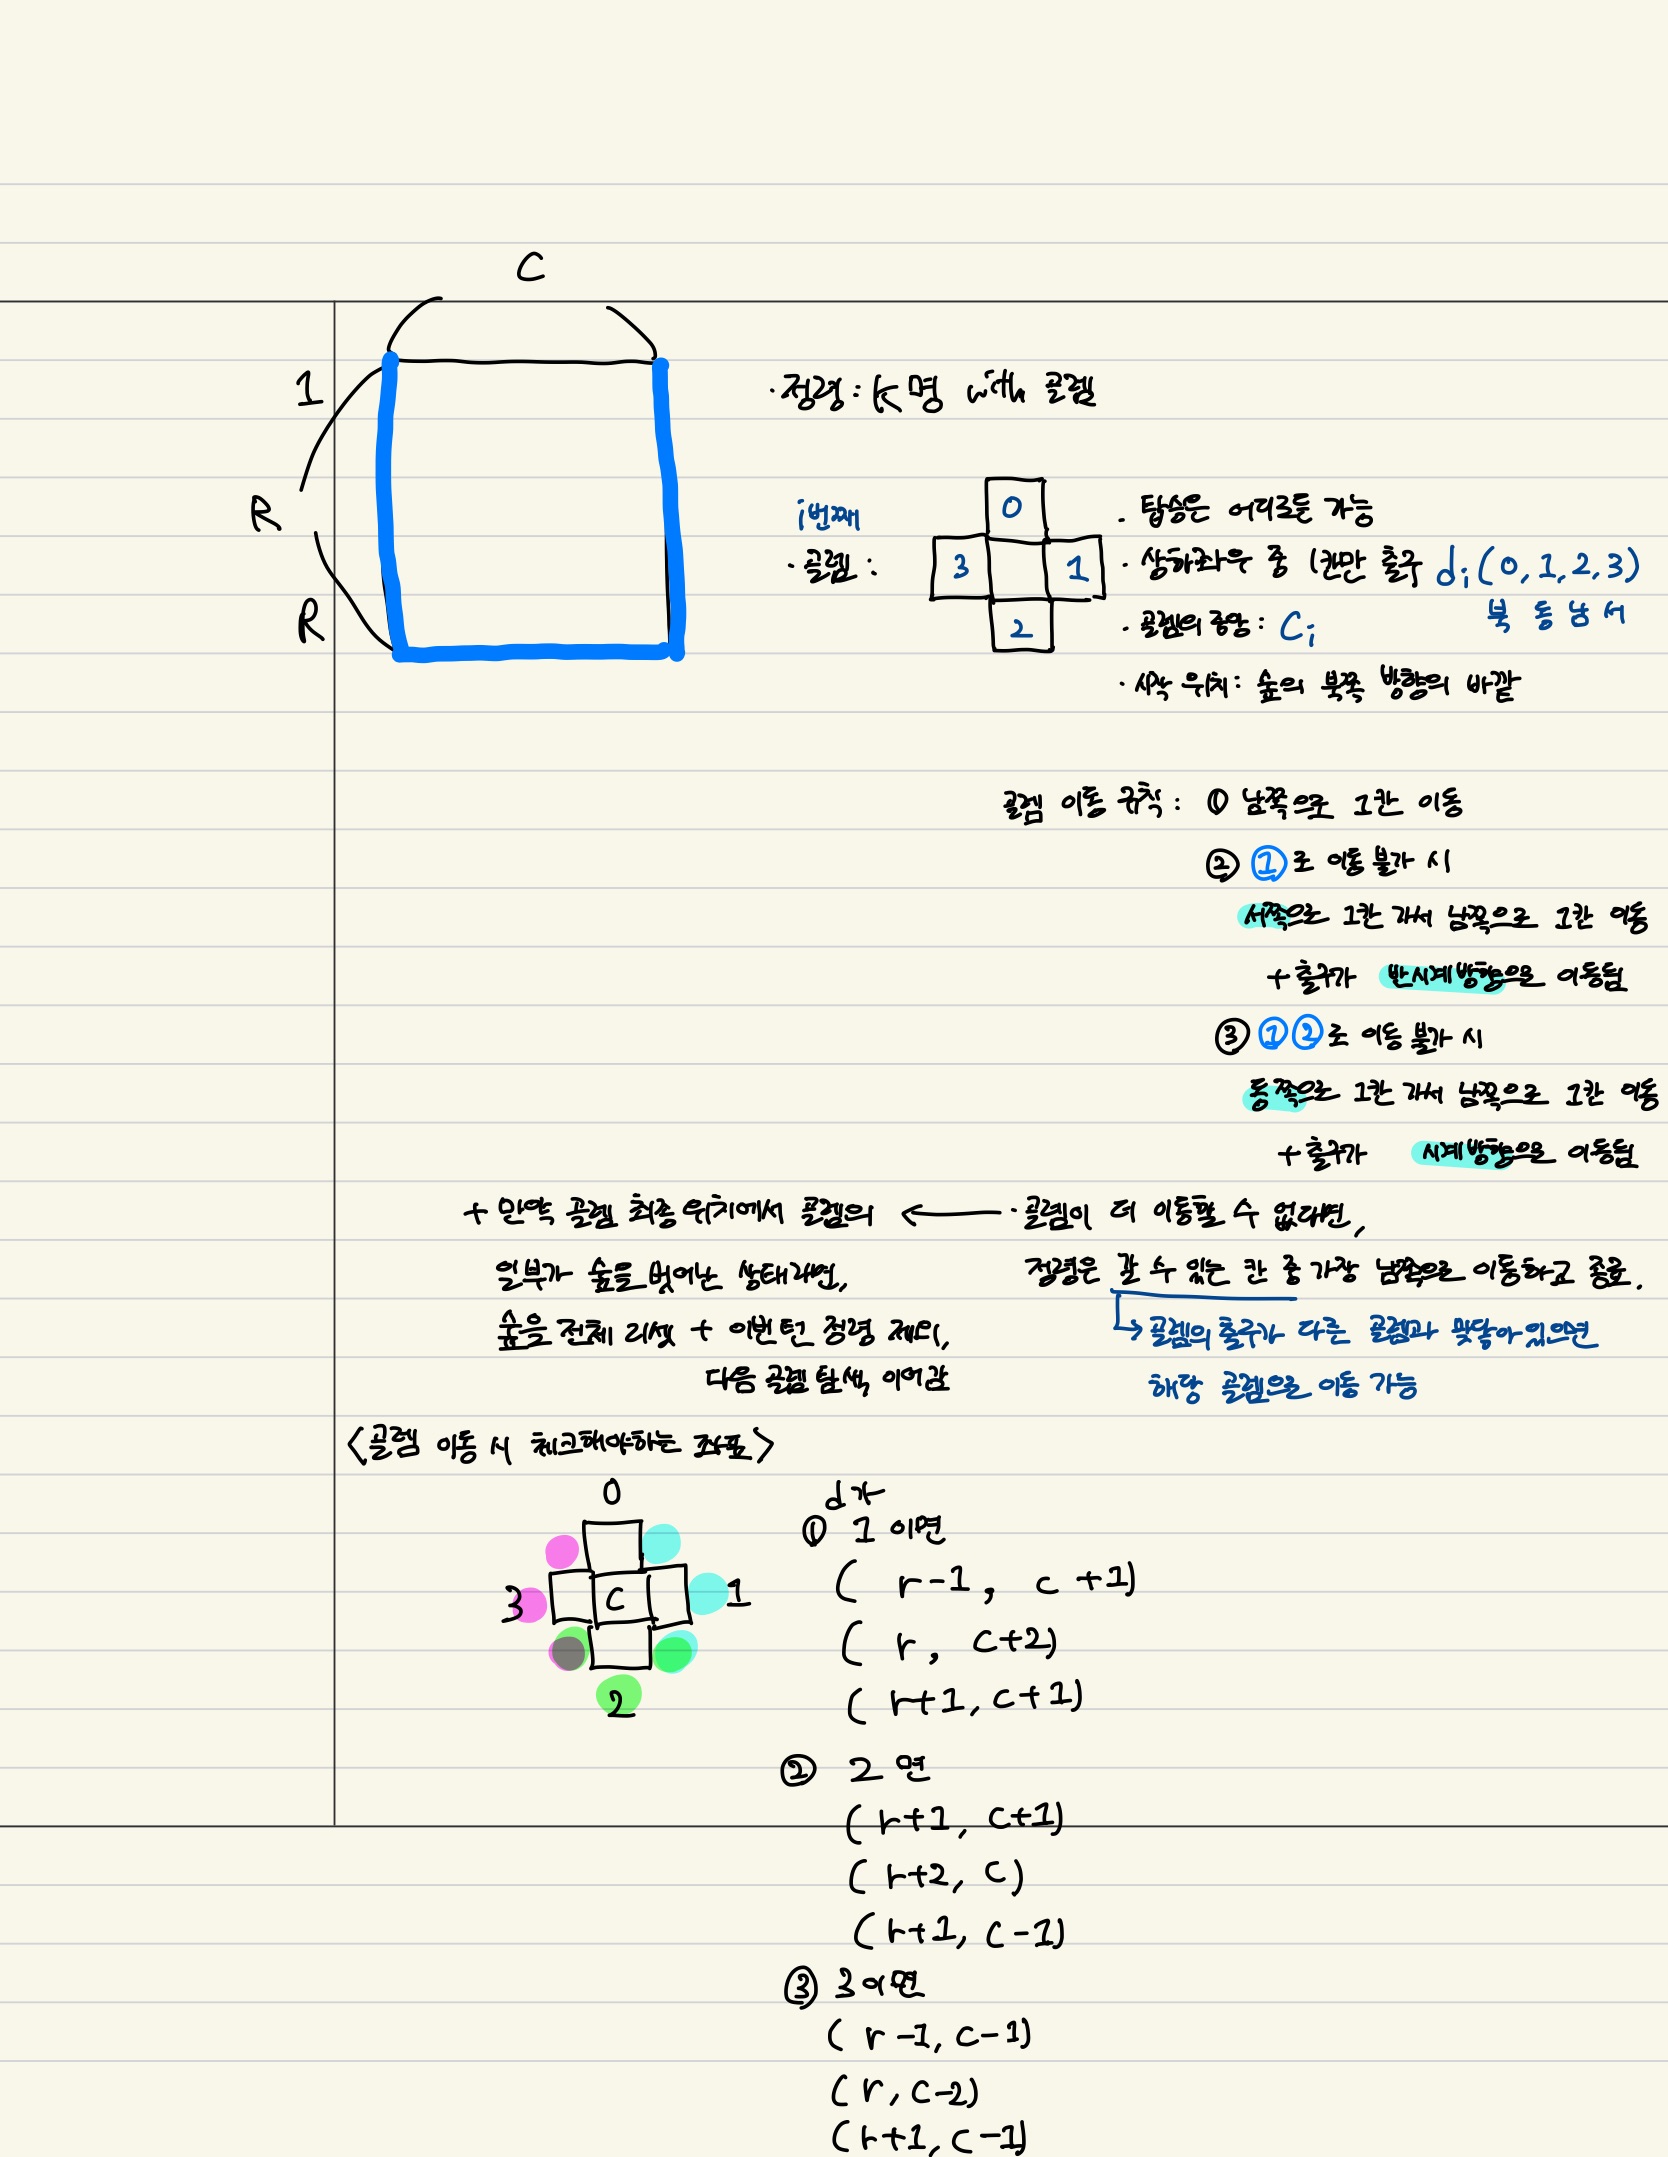 C
1
R
R
· 정령 : K명 with 골렘
i번째
· 골렘 :
0
3 1
2
· 탑승은 어디로든 가능
· 상하좌우 중 1칸만 출구 di (0, 1, 2, 3)
북 동 남 서
· 골렘의 중앙 : Ci
· 시작 위치 : 숲의 북쪽 방향의 바깥
골렘 이동 규칙 : ① 남쪽으로 1칸 이동
② ①로 이동 불가 시
서쪽으로 1칸 가서 남쪽으로 1칸 이동
+ 출구가 반시계방향으로 이동됨
③ ①②로 이동 불가 시
동쪽으로 1칸 가서 남쪽으로 1칸 이동
+ 출구가 시계방향으로 이동됨
· 골렘이 더 이동할 수 없다면,
정령은 갈 수 있는 칸 중 가장 남쪽으로 이동하고 종료.
↳ 골렘의 출구가 다른 골렘과 맞닿아있으면
해당 골렘으로 이동 가능
+ 만약 골렘 최종 위치에서 골렘의
일부가 숲을 벗어난 상태라면,
숲을 전체 리셋 + 이번턴 정령 제외,
다음 골렘 탐색 이어감
<골렘 이동 시 체크해야하는 좌표>
0
3 C 1
2
d가
① 1 이면
( r-1, c+1)
( r, c+2)
( r+1, c+1)
② 2 면
( r+1, c+1)
( r+2, c)
( r+1, c-1)
③ 3 이면
( r-1, c-1)
( r, c-2)
( r+1, c-1)